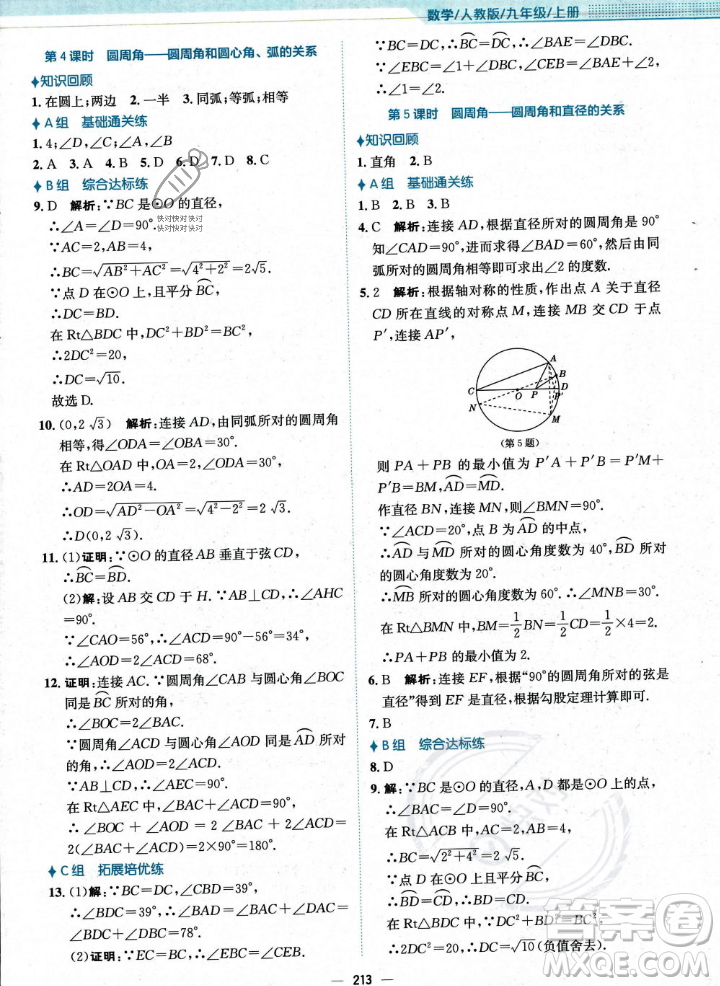 数学/人教版/九年级/上册
第4课时 圆周角——圆周角和圆心角、弧的关系
知识回顾
1. 在圆上;两边 2. 一半 3. 同弧;等弧;相等
A组 基础通关练
1. 4;∠D,∠A,∠B
2. A 3. A 4. B 5. D 6. D 7. D 8. C
B组 综合达标练
9. D 解析:∵BC是⊙O的直径,
∴∠A=∠D=90°.
∵AB=2,AC=4,
∴BC=√(AB²+AC²)=√(4²+2²)=2√5.
∵点D在⊙O上,且平分⌒BC,
∴DC=BD.
在Rt△BDC中,DC²+BD²=BC²,
∴2DC²=20,
∴DC=√10.
故选D.
10. (0,2√3) 解析:连接AD,由同弧所对的圆周角
相等,得∠ODA=∠OBA=30°.
在Rt△OAD中,OA=2,
∴AD=2OA=4.
∴OD=√(AD²-OA²)=√(4²-2²)=2√3.
∴D(0,2√3)
11. (1)证明:∵⊙O的直径AB垂直于弦CD,
∴⌒BC=⌒BD.
(2)解:设AB交CD于H.∵AB⊥CD,∴∠AHC
=90°.
∵∠CAO=56°,∴∠C=90°-56°=34°.
∴∠AOD=2∠ACD=68°.
12. 证明:连接AC.∵圆周角∠CAB与圆心角∠BOC
同是⌒BC所对的角,
∴∠BOC=2∠BAC.
∵圆周角∠ACD与圆心角∠AOD同是⌒AD所对
的角,
∴∠AOD=2∠ACD.
∵AB⊥CD,∴∠AEC=90°.
在Rt△AEC中,∠BAC+∠ACD=90°,
∴∠BOC+∠AOD=2∠BAC+2∠ACD=
2(∠BAC+∠ACD)=2×90°=180°.
C组 拓展培优练
13. (1)解:∵BC=DC,∠CBD=39°,
∴∠BDC=∠CBD=39°,
∴∠BAC=∠BDC=39°.
(2)证明:∵EC=BC,∴∠CBE=∠CEB.
∵⌒BC=⌒DC,∴∠BAC=∠BDC,
∵∠BEC=∠1+∠BAC,∠CBE=∠2+∠CBD,
∴∠1=∠2.
第5课时 圆周角——圆周角和直径的关系
知识回顾
1. 直角 2. B
A组 基础通关练
1. B 2. B 3. B
4. C 解析:连接AD,根据直径所对的圆周角是90°
知∠CAD=90°,进而求得∠D=60°,然后由同
弧所对的圆周角相等即可求出∠2的度数.
5. 2 解析:根据轴对称的性质,作出点A关于直径
CD所在直线的对称点M,连接MB交CD于点
P′,连接AP′,
A
B
C
O
P
P′
D
N
M
(第5题)
则PA+PB的最小值为P′A+P′B=P′M+
P′B=BM,⌒AD=⌒MD.
作直径BN,连接MN,则∠BMN=90°.
∵∠ACD=20°,点B为⌒AD的中点,
∴⌒AD与⌒MD所对的圆心角度数为40°,⌒BD所对
的圆心角度数为20°.
∴⌒MB所对的圆心角度数为60°.∴∠MNB=30°.
在Rt△BMN中,BM=1/2BN=1/2CD=1/2×4=2.
∴PA+PB的最小值为2.
6. B 解析:连接EF,根据“90°的圆周角所对的弦是
直径”得到EF是直径,根据勾股定理计算即可.
7. B
B组 综合达标练
8. D
9. 解:∵BC是⊙O的直径,A,D是⊙O上的两点,
∴∠BAC=∠BDC=90°.
在Rt△ABC中,∵AB=2,AC=4,
∴BC=√(AB²+AC²)=√(2²+4²)=2√5.
∵点D平分⌒BC,
∴⌒BD=⌒CD,∴BD=CD.
在Rt△BDC中,∵DC²+BD²=BC²,
∴2DC²=20,∴DC=√10(负值舍去).
213